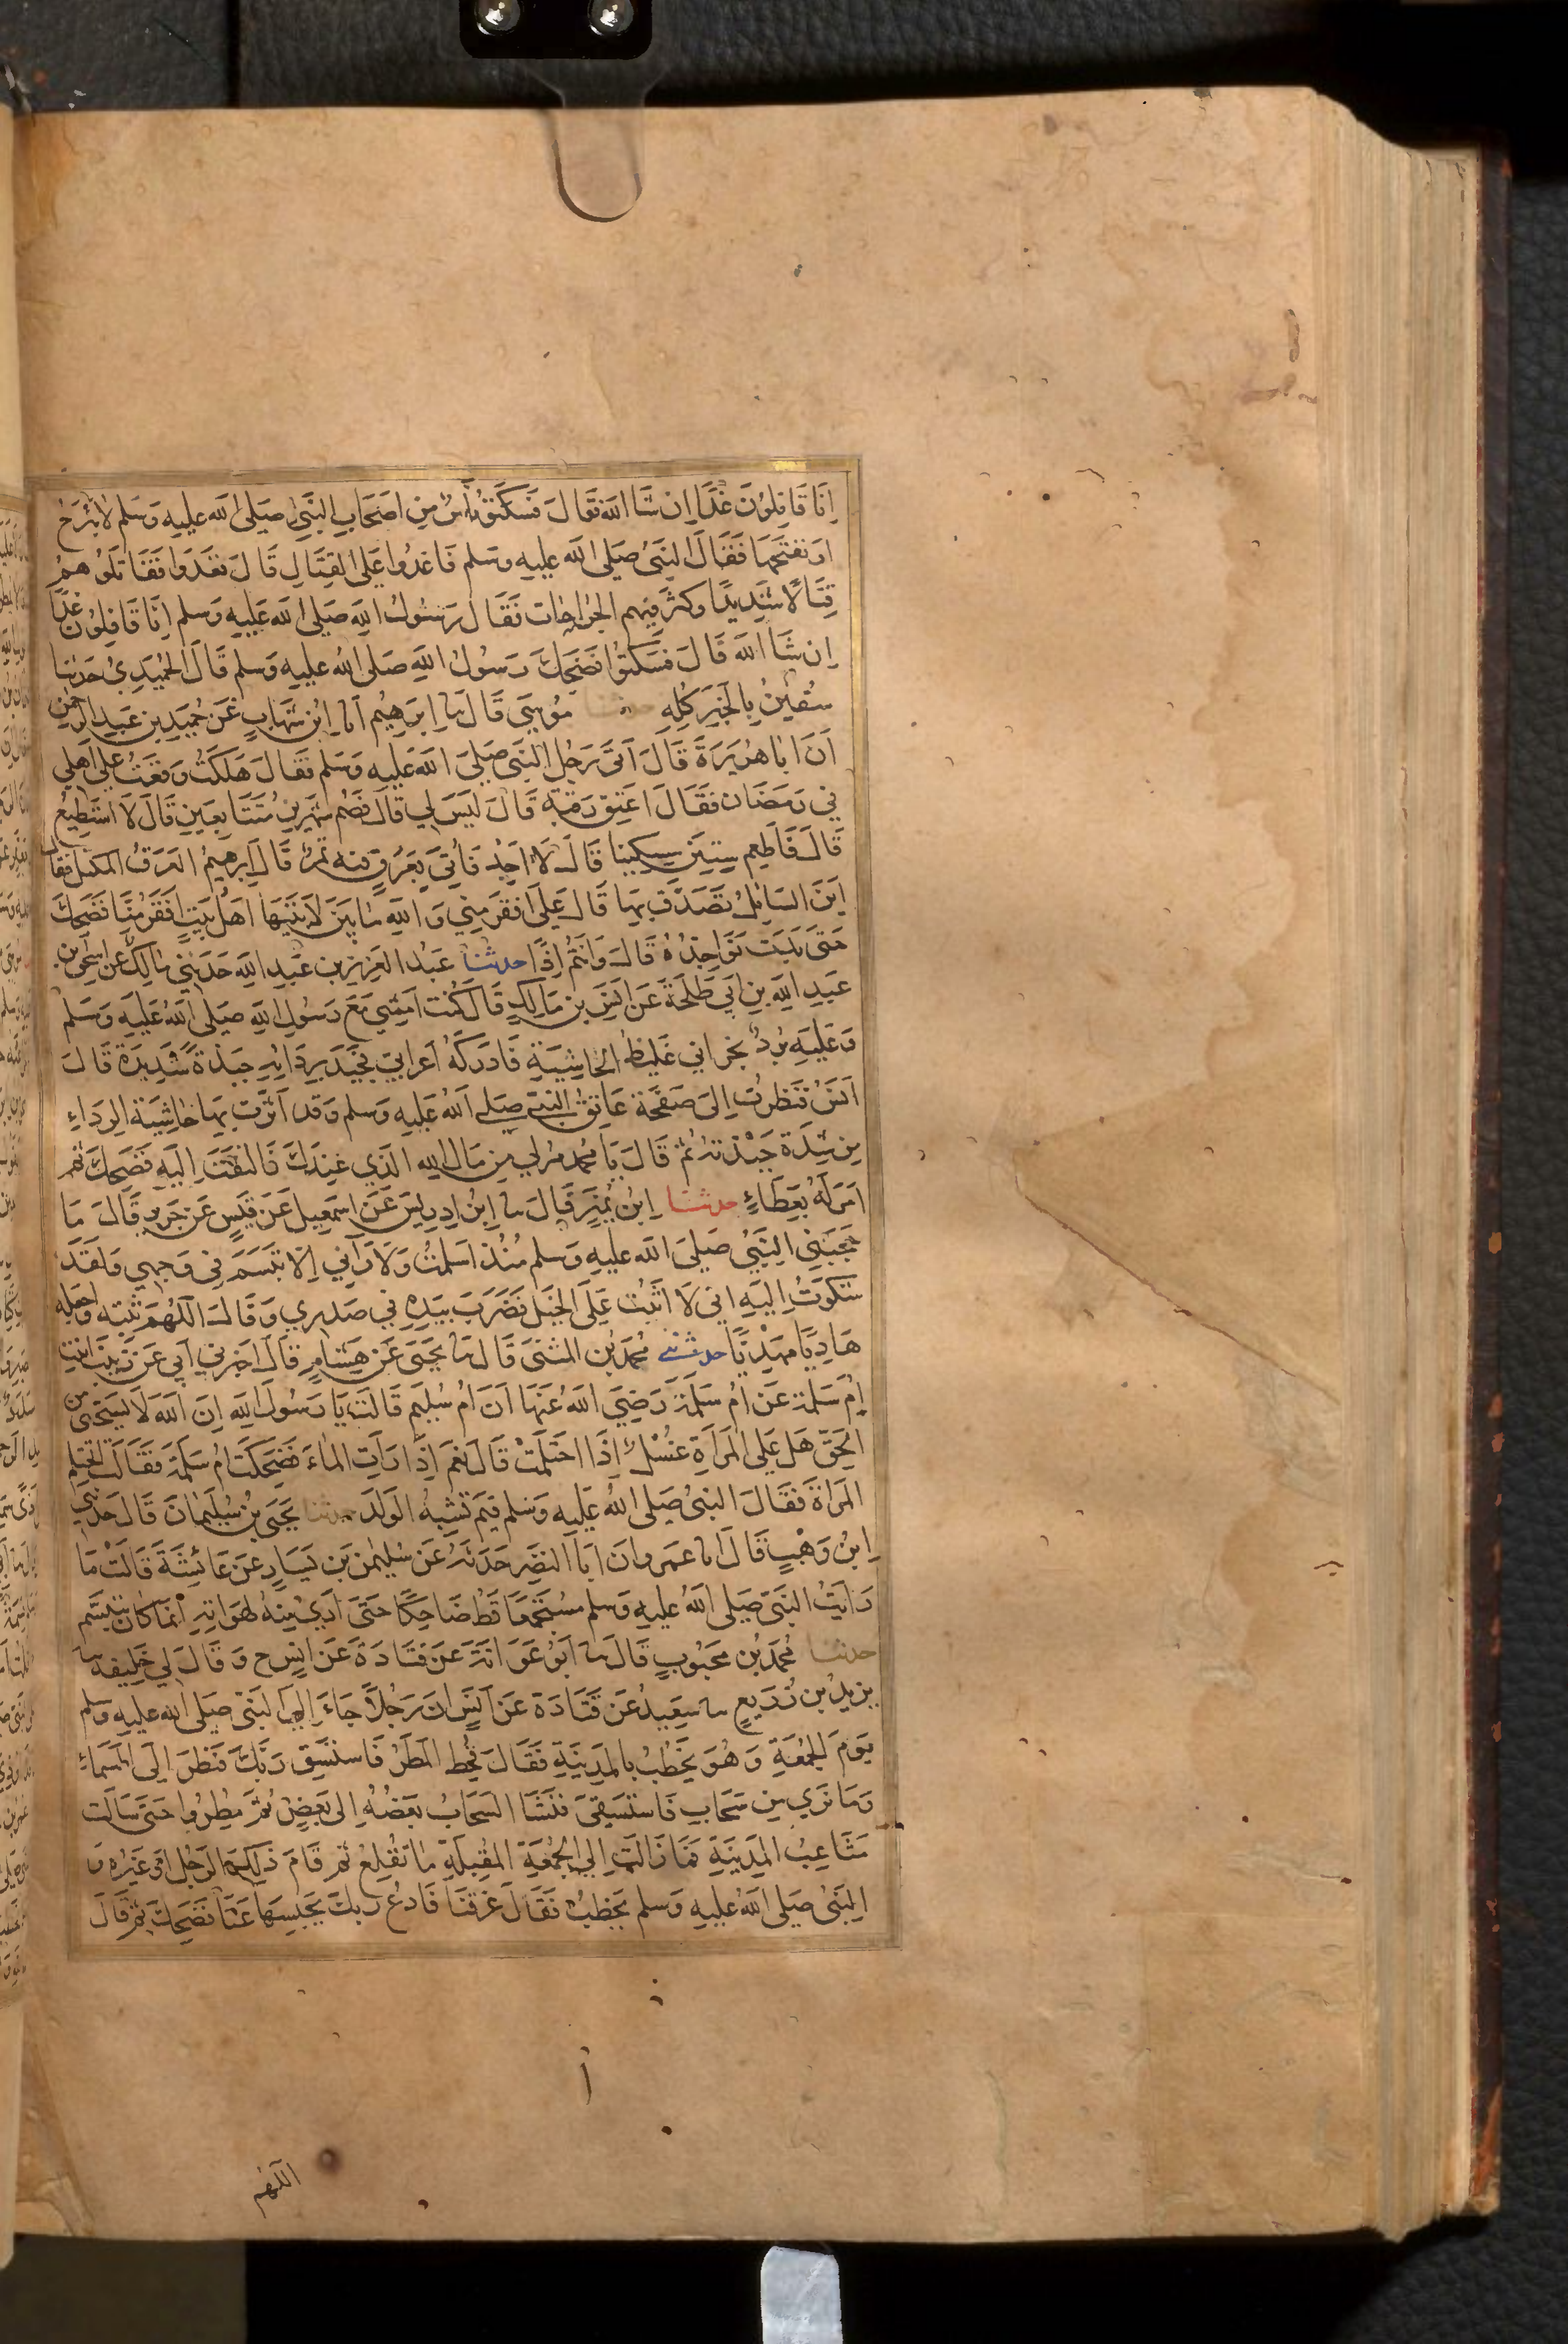 اِنَّا قَافِلُونَ غَدًا اِن شَا اللَّه فَقَالَ فَسَكَتُوْا نَاسٌ مِن اَصْحَابِ النَّبِيِّ صَلَى اللَّه عليه وَسَلم لاَ نَبْرَحُ
اوْ نَفْتَحَهَا فَقَالَ النَّبِىُّ صَلَى اللَّه عليهِ وسَلم فَاغدُوا عَلَى القِتَالِ قَالَ فغَدَوا فقَاتَلوُهمْ
قِتَالًا شَدِيدًا وكَثُرَ فيهم الجراحَات فَقَالَ رَسُولُ اللهِ صَلى الله عَلَيهِ وَسلم اِنَّا قَافِلُونَ غَدًا
اِن شَا اللَّه قَالَ فسَكتُوا فَضَحِكَ رَسولُ اللَّهِ صَلى الله عليهِ وسَلم قَالَ الحُمَيدِيُّ حَدَثنا
سُفيٰنُ بِالخَبَرِ كُلِهِ حدثنا مُوسَى قَالَ ثنا اِبرَهِيم انا اِبْن شهَابٍ عَن حُمَيدِ بن عَبدِ الرحمٰن
اَنَّ ابَا هُرَيرَةَ قَالَ اَتَى رَجُل النَّبِى صَلَى اللَّه عَليهِ وَسَلم فقَالَ هَلَكْتُ وَقعَتُ عَلى اَهلِي
في رَمضَان فقَالَ اعتِق رَقبَة قَالَ لَيسَ لي قَالَ فَصُم شَهْرَين مُتَتَابِعَينِ قَالَ لَا استَطِيعُ
قَالَ فَاَطعِم سِتِينَ مِسكِينا قَالَ لاَ اَجِدُ فَاُتِيَ بِعَرَقٍ فيه تَمرٌ قَالَ اِبرهِيمُ العَرَقُ المكتل فقال
اَينَ السَائِلُ تصَدَّق بِهَا قَالَ عَلَى افقَر مِني وَاللَّهِ مَا بَينَ لاَبَتَيهَا اَهْلُ بَيتٍ افَقَر مِنَّا فَضَحِكَ
حَتى بَدَت نَوَاجِذُهُ قَالَ وَانتُم اِذًا حدثنا عَبدُ العَزِيزِ بن عَبدِ اللهِ حَدَثني مَالِك عَن اسحٰق بن
عَبدِ اللَّهِ بنِ اَبِي طَلحَةَ عَن اَنَسِ بن مَالِكٍ قَالَ كُنت اَمشِي مَعَ رَسُولِ اللَّهِ صَلى الله عَليهِ وَسَلم
وَعَلَيهِ بُردٌ نجرَانِي غَليظُ الحَاشِيَةِ فَادرَكَهُ اَعرَابِيّ فجبَذ بِرِدَائِهِ جَبذَةً شَدِيدَة قَالَ
اَنَسٌ فنَظرتُ اِلىَ صَفحَةِ عَاتِق النَّبِيّ صَلى الله عَليهِ وسَلم وَقد اَثَّرَت بِهَا حَاشِيَة الرِدَاءِ
مِن شِدَةِ جَبْذتهِ ثم قَالَ يَا محمد مُر لِي مِن مَالِ اللَّهِ الذِي عِندَكَ فَالتفَتَ اِلَيهِ فَضَحِكَ ثم
اَمَرَ لَهُ بِعَطَاءٍ حدثنا اِبن نُمَيرٍ قَالَ ثنا اِبن اِدرِيسَ عَن اِسمعِيل عَن قَيسٍ عَن جَرِيرٍ قَالَ مَا
حَجَبَنِي النَّبِيُّ صَلى الله عليهِ وسلم مُنْذ اَسلَمتُ وَلَا رَآنِي اِلاَّ تبَسَّمَ فِي وَجهِي وَلقَد
شكَوتُ اِلَيهِ انى لَا اَثبُت عَلَى الخَيل فَضَرَبَ بِيَدِهِ فِي صَدرِي وَقَالَ اللّهُمّ ثَبّته وَاجعَله
هَادِيًا مَهْدِيًّا حدثنى محمَد بن المثنى قَالَ ثنا يَحيَى عَن هِشَامٍ قَالَ اخبَرَني اَبي عَن زَينبَ ابنت
اُم سَلَمة عَن اُم سَلَمَة رَضيَ الله عَنهَا اَن اُم سُلَيم قَالَت يَا رَسُولَ اللهِ اِن اللهَ لَا يَستَحيى من
الحَقّ هَل عَلى المَراَةِ غسْلٌ اِذَا احتَلَمَتْ قَالَ نَعَم اِذَا رَاَتِ المَاءَ فضَحِكَت اُم سَلَمَة فَقَالَت اَتَحتَلِم
المَراَة فقَالَ النَّبِىُّ صَلى اللهُ عَليهِ وَسَلم فبم تُشْبِهُ الوَلَدَ حدثنا يَحيَى بن سُلَيمَانَ قَالَ حَدثني
اِبنُ وَهْبٍ قَالَ انا عمرو ان اَبَا النضر حَدثهُ عَن سُليمٰن بن يَسَارٍ عن عَائِشَةَ قَالَتْ مَا
رَاَيتُ النَبيّ صَلى اللهُ عليهِ وسَلم مُسْتَجمعًا قَط ضَاحِكًا حَتى اَرىٰ مِنهُ لهَوَاتِهِ اِنمَا كَان يَتَبَسَّم
حدثنا مُحَمد بن مَحبُوبٍ قَالَ ثنا اَبُو عَوَانَةَ عَن قتَادَةَ عَن انَسٍ ح وَقَالَ لِي خَليفة ثنا
يزِيدُ بن زُرَيعٍ ثنا سَعِيدٌ عَن قَتَادَة عَن اَنَسٍ ان رَجُلاً جَاءَ اِلَى النَّبِيّ صَلى الله عليهِ وسَلم
يَومَ الجُمُعَةِ وَهُوَ يَخطُبُ بالمَدِينَةِ فَقَالَ قُحِط المَطَرُ فَاستَسقِ رَبَّكَ فنَظَرَ اِلَى السَمَاءِ
وَمَا نَرىٰ مِن سَحَابٍ فَاستَسقَى فنَشَا السحَابُ بَعضُهُ اِلى بَعضٍ ثم مُطِرُوا حَتىٰ سَالَت
مَثَاعِبُ المَدِينَةِ فَمَا زَالت اِلى الجُمُعَةِ المُقبِلَةِ مَا تُقلِعُ ثم قَامَ ذلِكَ الرَجُل اَو غَيرُه وَ
النَبِىُّ صَلى اللَّه عليهِ وَسَلم يَخطُبُ فَقَالَ غرقنَا فَادعُ رَبكَ يَحبِسهَا عَنَّا فَضَحِكَ ثم قَالَ
اللّهم